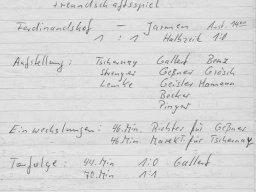 Freundschaftsspiel
Ferdinandshof - Jarmen Anst. 14⁰⁰
1 : 1 Halbzeit 1:0
Aufstellung: Tschernay Gallert Benz
Strenger Geßner Grösch
Lemke Geisler Hamann
Becker
Pinger
Einwechslungen: 46. Min Richter für Geßner
46 Min Marekt für Tschernay
Torfolge: 44. Min 1:0 Gallert
70. Min 1:1